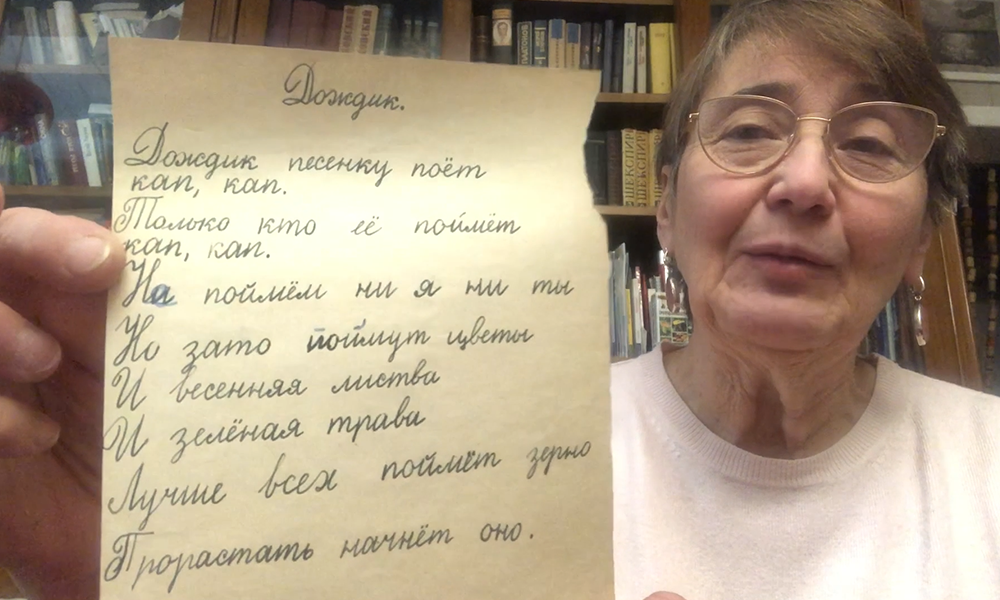 Дождик.
Дождик песенку поёт
кап, кап.
Только кто её поймёт
кап, кап.
На поймём ни я ни ты
Но зато поймут цветы
И весенняя листва
И зелёная трава
Лучше всех поймёт зерно
Прорастать начнёт оно.
ШЕКСПИР